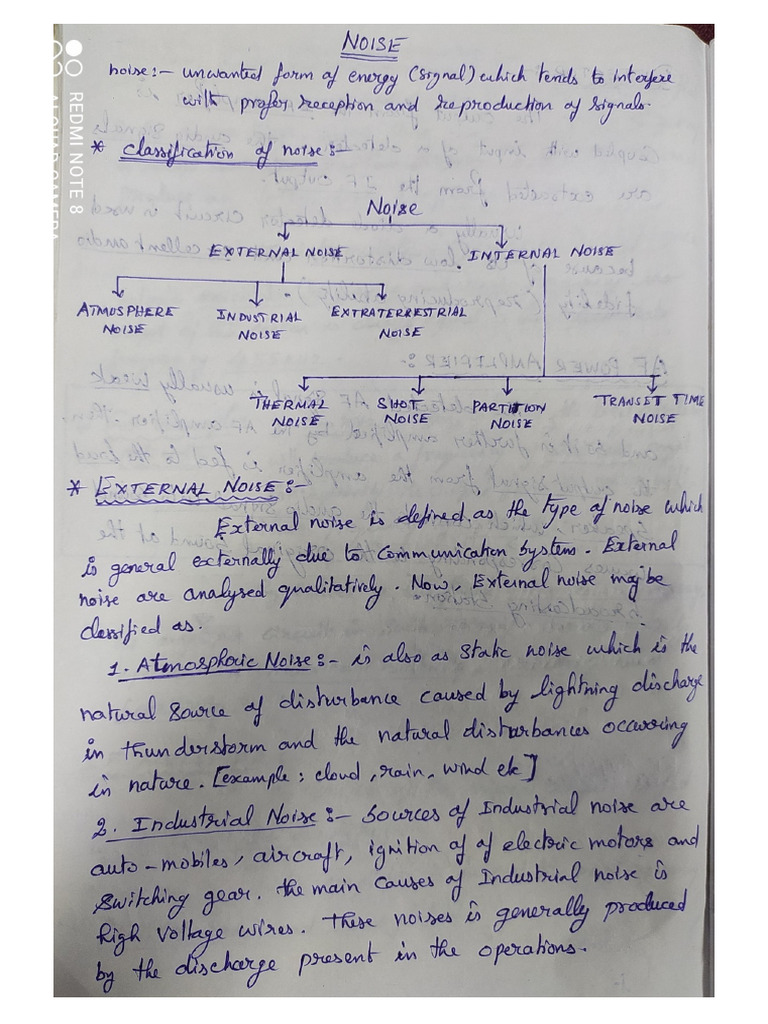 NOISE
noise:- unwanted form of energy (signal) which tends to interfere
with profer reception and reproduction of signals.
* classification of noise:-
Noise
EXTERNAL NOISE
INTERNAL NOISE
ATMOSPHERE NOISE
INDUSTRIAL NOISE
EXTRATERRESTRIAL NOISE
THERMAL NOISE
SHOT NOISE
PARTITION NOISE
TRANSET TIME NOISE
* EXTERNAL NOISE:-
External noise is defined as the type of noise which
is general externally due to communication system. External
noise are analysed qualitatively. Now, External noise may be
classified as.
1. Atmospheric Noise:- is also as static noise which is the
natural source of disturbance caused by lightning discharge
in thunderstorm and the natural disturbances occurring
in nature. [example: cloud, rain, wind etc]
2. Industrial Noise:- Sources of Industrial noise are
auto-mobiles, aircraft, ignition of of electric motors and
switching gear. the main causes of Industrial noise is
high voltage wires. These noises is generally produced
by the discharge present in the operations.
REDMI NOTE 8